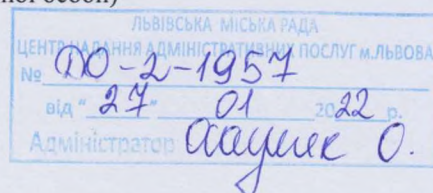 ної особи)
ЛЬВІВСЬКА МІСЬКА РАДА
ЦЕНТР НАДАННЯ АДМІНІСТРАТИВНИХ ПОСЛУГ м.ЛЬВОВА
№ ДО-2-1957
від "27" 01 2022 р.
Адміністратор О.